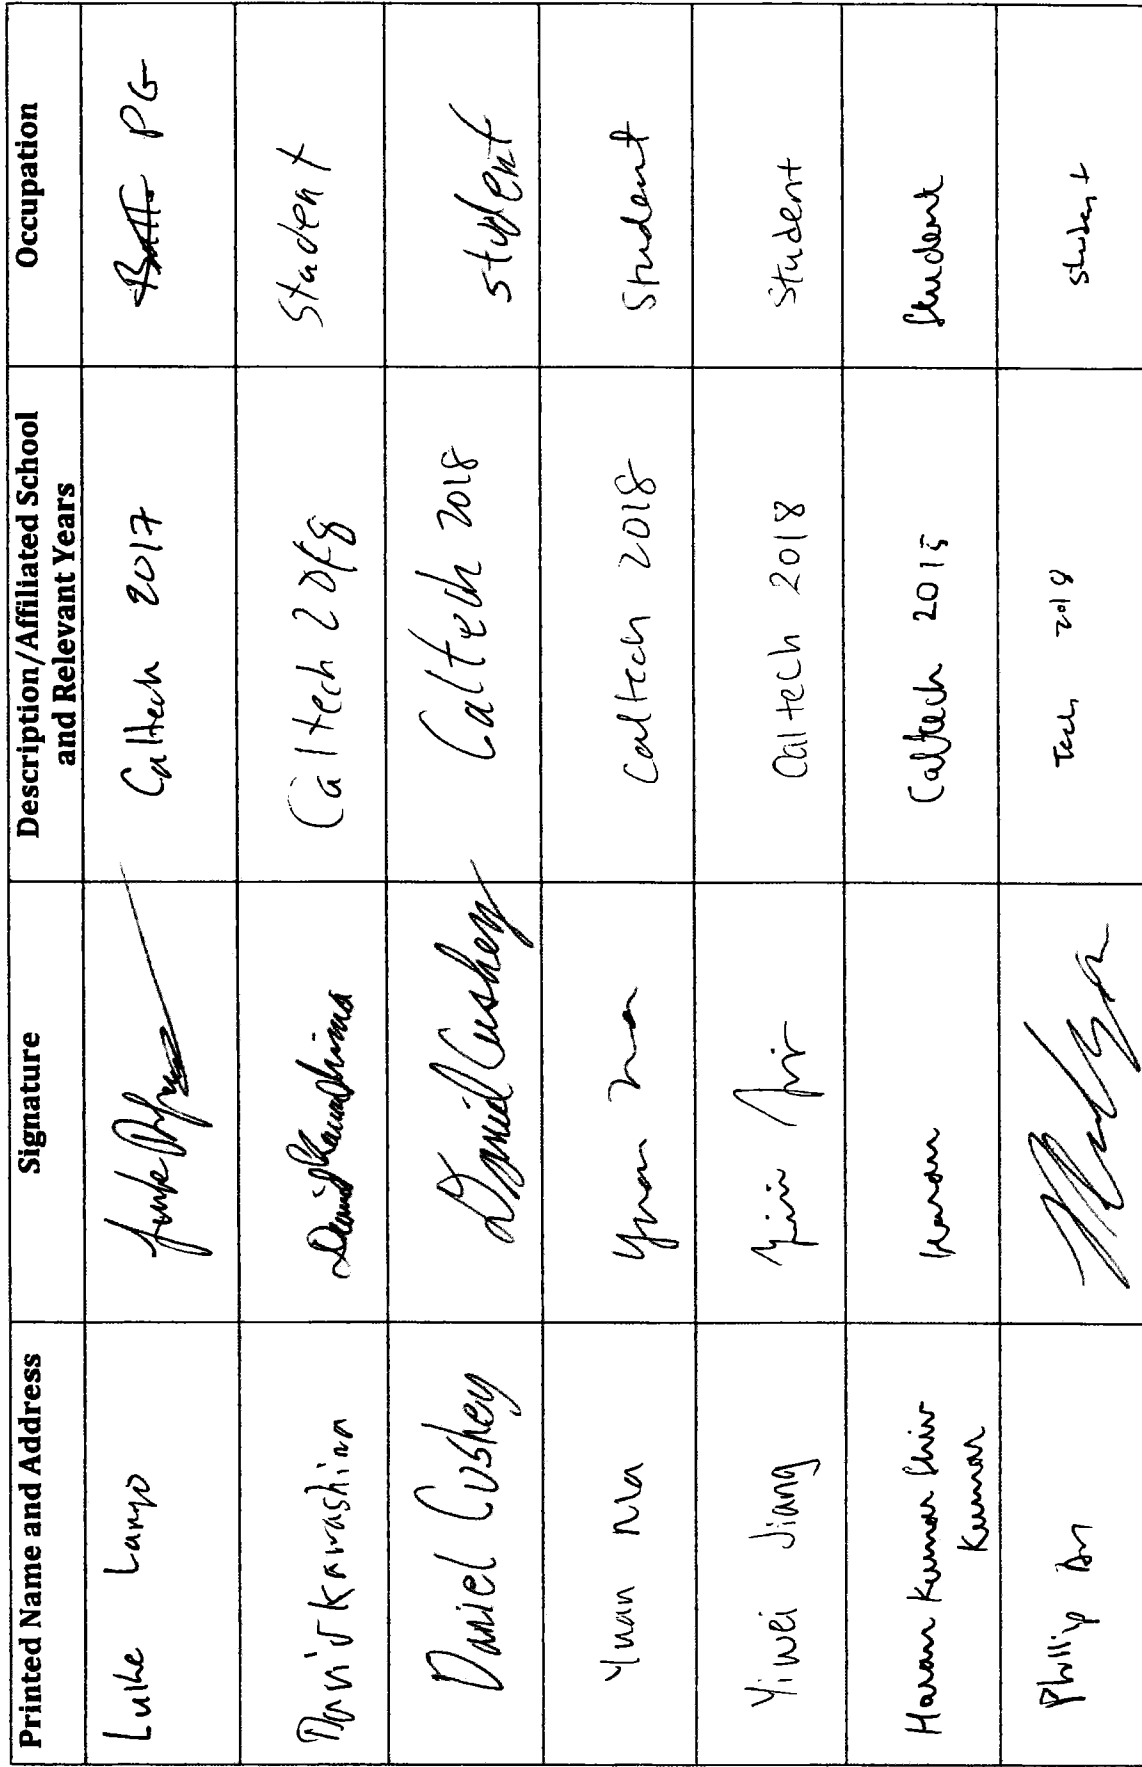 Printed Name and Address	Signature	Description/Affiliated School and Relevant Years	Occupation
Luke	Caltech 2017	PG
David Kawashima	David Kawashima	Caltech 2018	Student
Daniel Cushey	Daniel Cushey	Caltech 2018	student
Yuan Ma	Yuan Ma	Caltech 2018	Student
Yiwei Jiang	Caltech 2018	Student
Haran Kumar Shiv Kumar	Haran	Caltech 2015	Student
Phillip An	Tech 2018	student